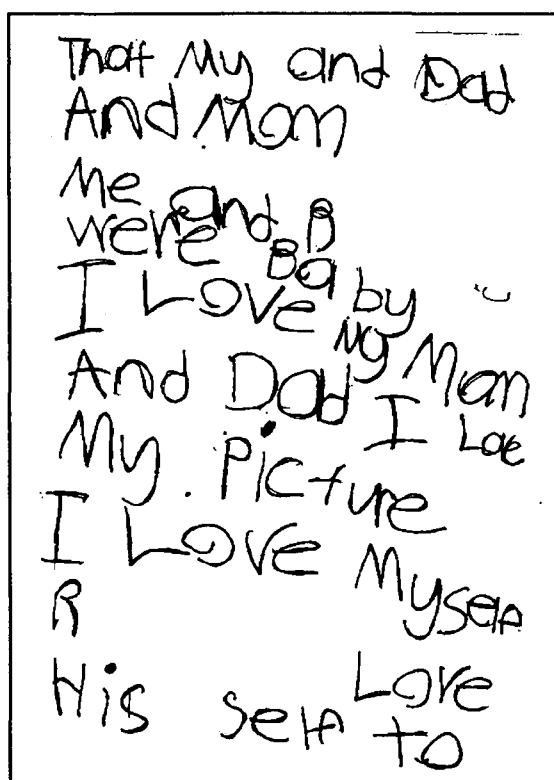 That My and Dad
And Mom
Me and B
were Baby
I Love My Mom
And Dad I Loe
My Picture
I Love Myself
R Love
His self to